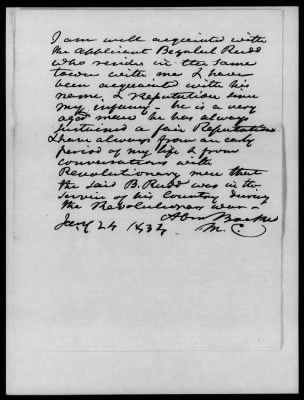 I am well acquainted with
the applicant Bezaleel Rudd
who resides in the same
town with me I have
been acquainted with his
name & reputation since
my infancy - he is a very
aged man he has always
sustained a fair Reputation
I have always from an early
period of my life & from
conversations with
Revolutionary men that
the said B. Rudd was in the
service of his Country during
the Revolutionary war -
M. C.